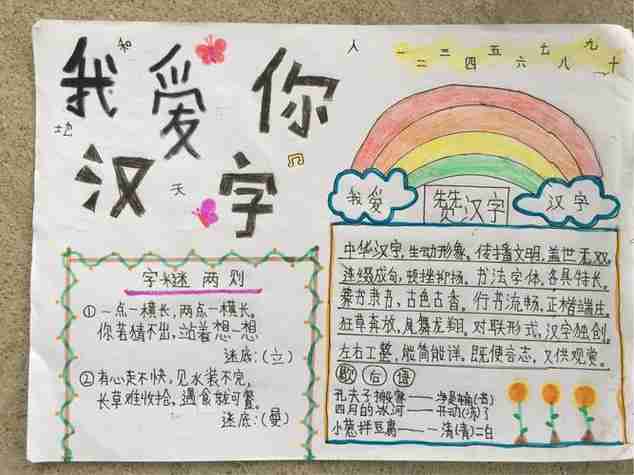 我爱你
汉字
和
地
天
人
一二三四五六七八九十
我爱
赞汉字
汉字
字谜两则
①一点一横长，两点一横长。
你若猜不出，站着想一想
迷底：(立)
②有心走不快，见水装不完，
长草难收拾，遇食就可餐。
迷底：(曼)
中华汉字，生动形象，传播文明，盖世无双。
连缀成句，顿挫抑扬，书法字体，各具特长。
篆书隶书，古色古香，行书流畅，正楷端庄。
狂草奔放，凤舞龙翔，对联形式，汉字独创。
左右工整，能简能详，既便言志，又供观赏。
歇后语
孔夫子搬家——净是输(书)
四月的冰河——开动(冻)了
小葱拌豆腐——一清(青)二白